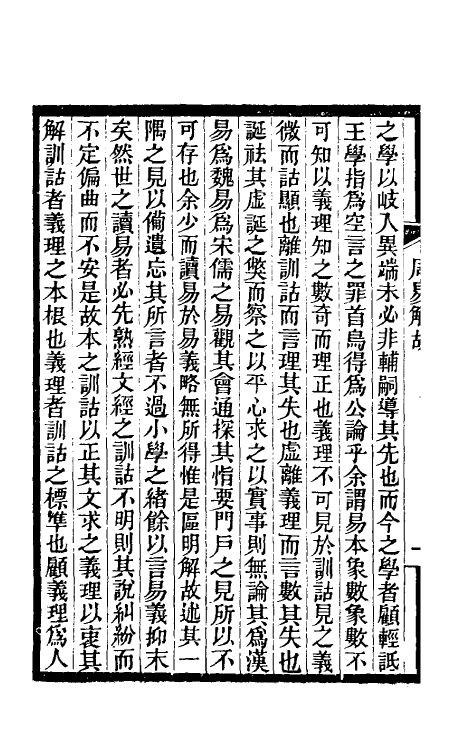 之學以歧入異端未必非輔嗣導其先也而今之學者顧輕詆
王學指爲空言之罪首烏得爲公論乎余謂易本象數象數不
可知以義理知之數奇而理正也義理不可見於訓詁見之義
微而詁顯也離訓詁而言理其失也虛離義理而言數其失也
誕祛其虛誕之弊而察之以平心求之以實事則無論其爲漢
易爲魏易爲宋儒之易觀其會通探其情要門戶之見所以不
可存也余少而讀易於易義略無所得惟是區明解故述其一
隅之見以僃遺忘其所言者不過小學之緒餘以言易義抑末
矣然世之讀易者必先熟經文經之訓詁不明則其說糾紛而
不定偏曲而不安是故本之訓詁以正其文求之義理以衷其
解訓詁者義理之本根也義理者訓詁之標準也顧義理爲人
周易解故
一